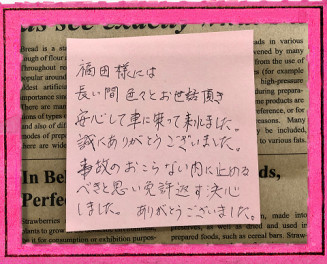 as see exactly w
福田様には
長い間色々とお世話頂き
安心して車に乗って来ました。
誠にありがとうございました。
事故のおこらない内に止める
べきと思い免許返す決心
しました。ありがとうございました。
Bread is a sta
ough of flour a
Throughout re
opular around
ldest artificia
mportance sinc
There are many
ons of types,
and also of dif
modes of
of names
ads in various
from the use of
(for example
high-pressure
during prepara-
products are
reference, or for
Many may
be included,
to various fats.
In Bel
Perfe
Strawberries
plants to grow
be it for consumption or exhibition purpos-
ds,
made into
preserves, as well as dried and used in
prepared foods, such as cereal bars. Straw-